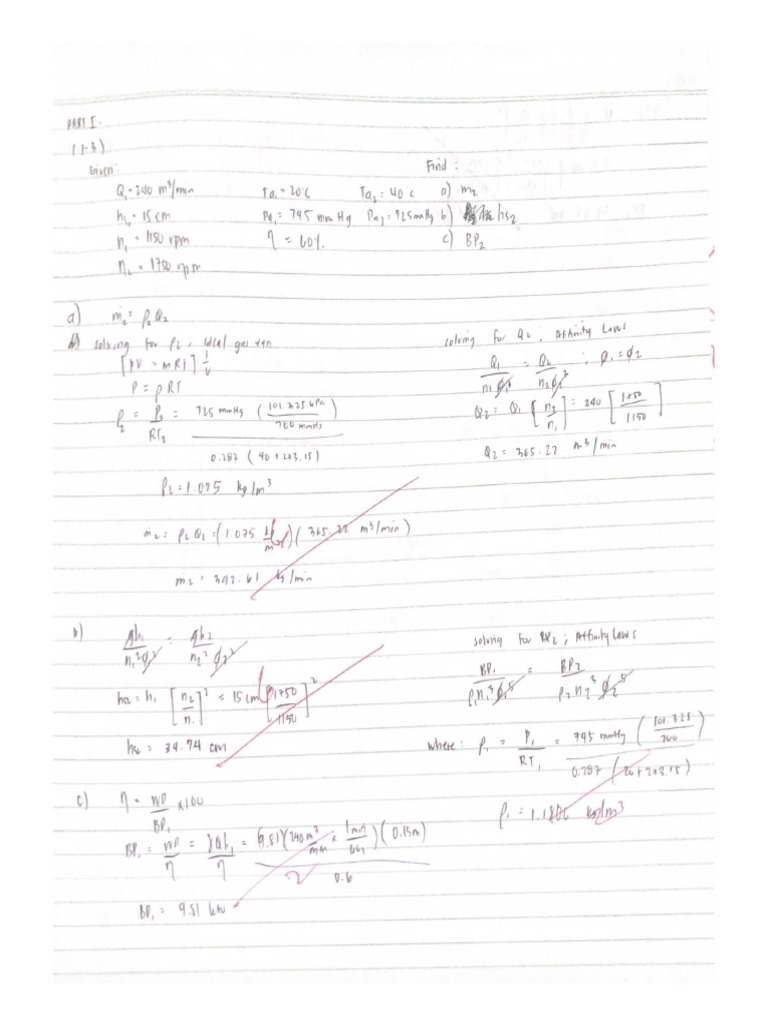 PART I.
(1-3)
Given: Find:
Q₁ = 240 m³/min Ta₁ = 20°C Ta₂ = 40°C a) m₂
h₁ = 15 cm Pa₁ = 745 mm Hg Pa₂ = 725 mmHg b) hs₂
n₁ = 1150 rpm η = 60% c) BP₂
n₂ = 1750 rpm
a) ṁ₂ = ρ₂Q₂
solving for ρ₂, ideal gas eqn
[PV = mRT] 1/V
P = ρRT
ρ₂ = P₂/RT₂ = 725 mmHg (101.325 kPa / 760 mmHg) / 0.287 (40 + 273.15)
ρ₂ = 1.075 kg/m³
solving for Q₂; Affinity Laws
Q₁/n₁φ₁³ = Q₂/n₂φ₂³ ; φ₁ = φ₂
Q₂ = Q₁ [n₂/n₁] = 240 [1750/1150]
Q₂ = 365.22 m³/min
ṁ₂ = ρ₂Q₂ = (1.075 kg/m³)(365.22 m³/min)
m₂ = 392.61 kg/min
b) gh₁/n₁²φ₁² = gh₂/n₂²φ₂²
h₂ = h₁ [n₂/n₁]² = 15 cm [1750/1150]²
h₂ = 34.74 cm
solving for BP₂; Affinity Laws
BP₁/ρ₁n₁³φ₁⁵ = BP₂/ρ₂n₂³φ₂⁵
where: ρ₁ = P₁/RT₁ = 745 mmHg (101.325/760) / 0.287 (20 + 273.15)
ρ₁ = 1.1806 kg/m³
c) η = WP/BP₁ x100
BP₁ = WP/η = γQh₁/η = (9.81)(240 m³/min x 1 min/60s)(0.15m) / 0.6
BP₁ = 9.81 kW